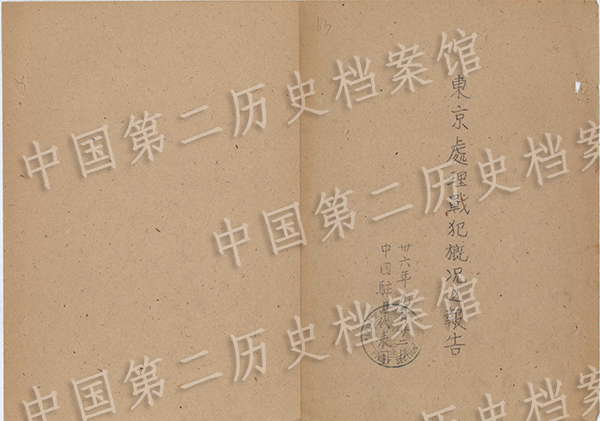 63
東京處理戰犯概况之報告
卅六年
中國駐日代表團
中国第二历史档案馆
中国第二历史档案馆
中国第二历史档案馆